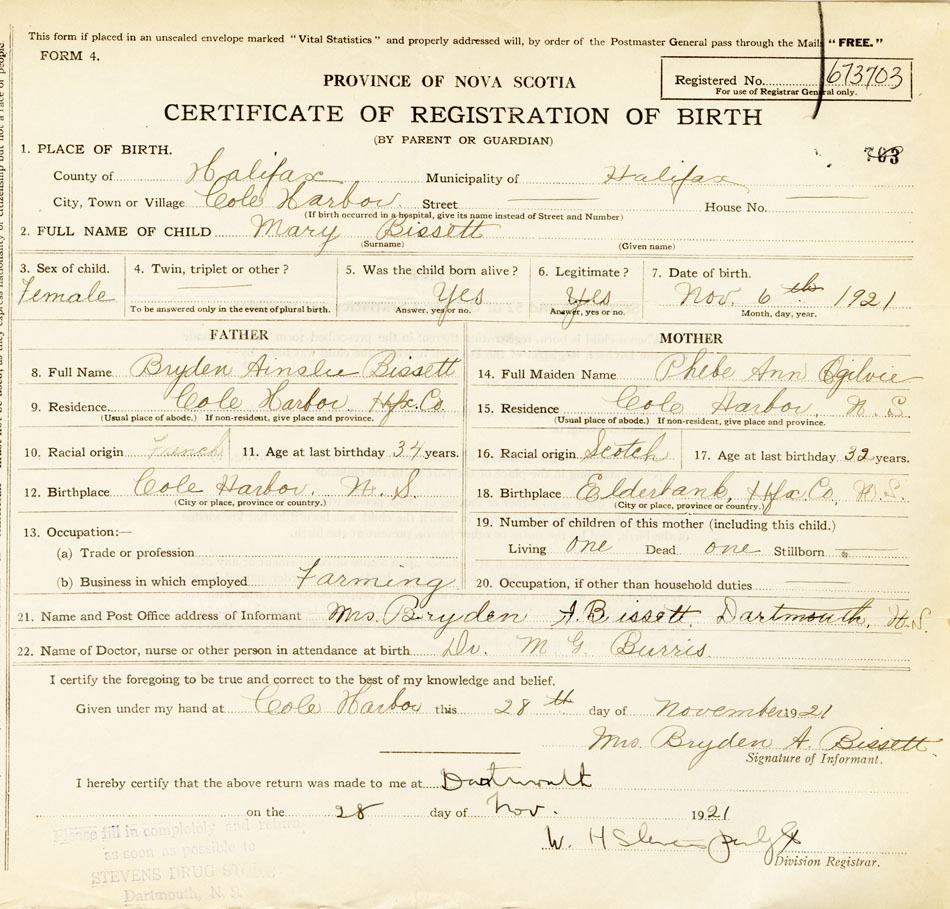 This form if placed in an unsealed envelope marked "Vital Statistics" and properly addressed will, by order of the Postmaster General pass through the Mails "FREE."
FORM 4.
PROVINCE OF NOVA SCOTIA
Registered No. 673703
For use of Registrar General only.
CERTIFICATE OF REGISTRATION OF BIRTH
(BY PARENT OR GUARDIAN)
703
1. PLACE OF BIRTH.
County of Halifax Municipality of Halifax
City, Town or Village Cole Harbor Street House No.
(If birth occurred in a hospital, give its name instead of Street and Number)
2. FULL NAME OF CHILD Mary Bissett
(Surname) (Given name)
3. Sex of child. 4. Twin, triplet or other? 5. Was the child born alive? 6. Legitimate? 7. Date of birth.
Female Yes Yes Nov. 6th 1921
To be answered only in the event of plural birth. Answer, yes or no. Answer, yes or no. Month, day, year.
FATHER MOTHER
8. Full Name Bryden Ainslie Bissett 14. Full Maiden Name Phebe Ann Ogilvie
9. Residence Cole Harbor, Hfx. Co. 15. Residence Cole Harbor, N. S.
(Usual place of abode.) If non-resident, give place and province. (Usual place of abode.) If non-resident, give place and province.
10. Racial origin French 11. Age at last birthday 34 years. 16. Racial origin Scotch 17. Age at last birthday 32 years.
12. Birthplace Cole Harbor, N. S. 18. Birthplace Elderbank, Hfx Co, N. S.
(City or place, province or country.) (City or place, province or country.)
13. Occupation:— 19. Number of children of this mother (including this child.)
(a) Trade or profession Living one Dead one Stillborn
(b) Business in which employed Farming 20. Occupation, if other than household duties
21. Name and Post Office address of Informant Mrs. Bryden A. Bissett, Dartmouth, N.S.
22. Name of Doctor, nurse or other person in attendance at birth Dr. M G Burris
I certify the foregoing to be true and correct to the best of my knowledge and belief.
Given under my hand at Cole Harbor this 28th day of November 1921
Mrs. Bryden A. Bissett
Signature of Informant.
I hereby certify that the above return was made to me at Dartmouth
on the 28 day of Nov. 1921
W. H
Division Registrar.
Please fill in completely and return
as soon as possible to
STEVENS DRUG STORE
Dartmouth, N. S.